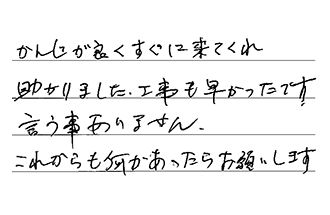 かんじが良くすぐに来てくれ
助かりました.工事も早かったです
言う事ありません.
これからも何かあったらお願いします